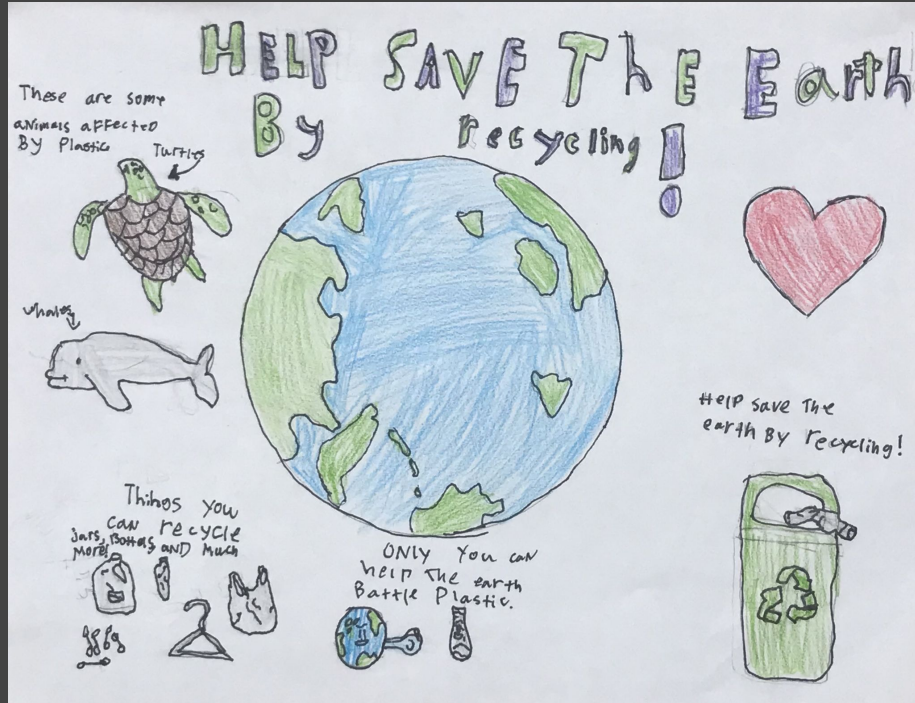 HELP SAVE The Earth
By recycling!
These are some
animals affected
By Plastic
Turtles
whales
Help save The
earth By recycling!
Things you
can recycle
Jars, Bottles and Much
More!
Only you can
help The earth
Battle Plastic.